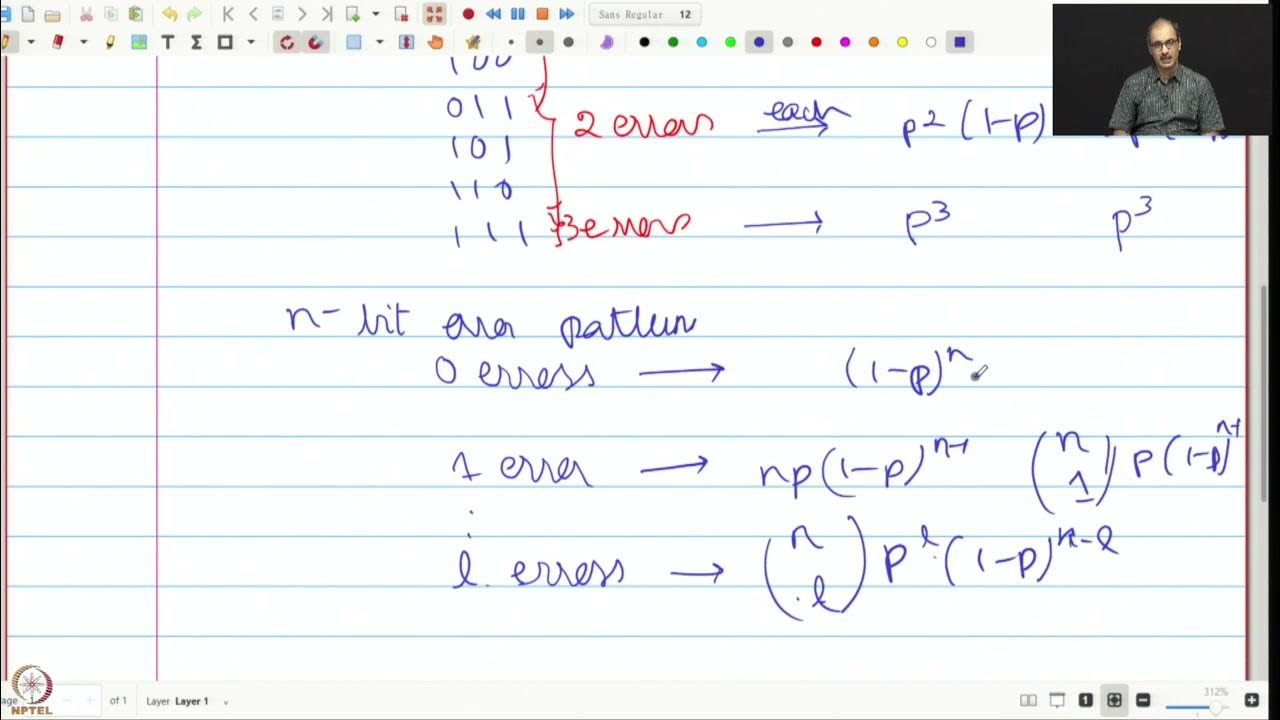 Sans Regular 12
100
011
2 errors each → p² (1-p)
101
110
111 3 errors → p³ p³
n-bit error pattern
0 errors → (1-p)ⁿ
1 error → np(1-p)ⁿ⁻¹ (n 1) p(1-p)ⁿ⁻¹
l errors → (n l) pˡ (1-p)ⁿ⁻ˡ
age 1 of 1 Layer Layer 1 312%
NPTEL